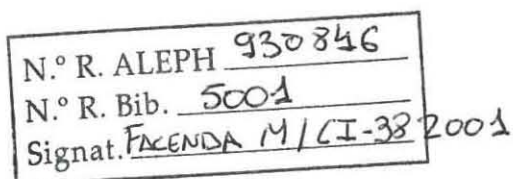 N.º R. ALEPH 930846
N.º R. Bib. 5001
Signat. FACENDA M/CI-38 2001